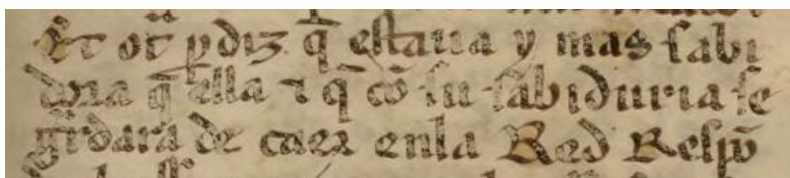 Et ot̃ ꝑdiz q̃ estaua y mas sabi
dora q̃ ella ⁊ q̃ cõ su sabiduria se
gr̃dara de caer enla Red Respõ